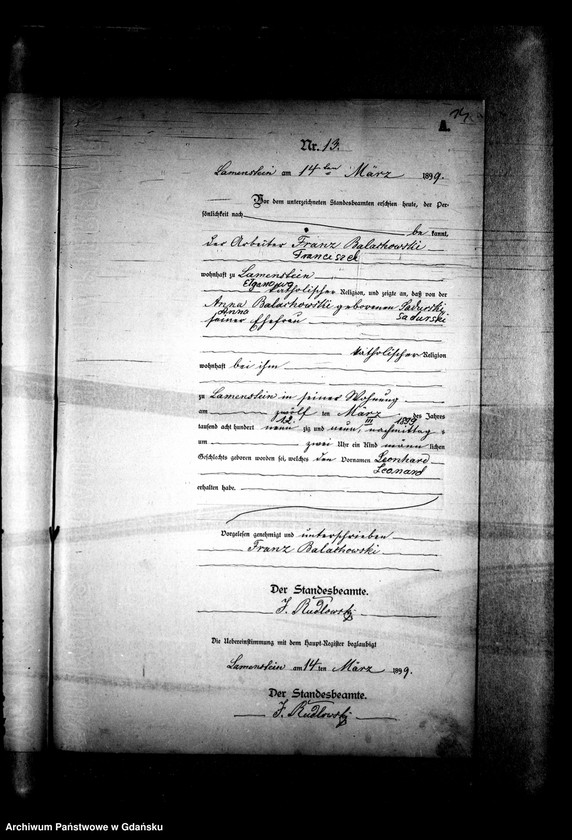 A.
Nr. 13.
Lamenstein am 14ten März 1899.
Vor dem unterzeichneten Standesbeamten erschien heute, der Per-
sönlichkeit nach
be kannt,
der Arbeiter Franz Balachowski
Franciszek
wohnhaft zu Lamenstein
Elganowo
katholischer Religion, und zeigte an, daß von der
Anna Balachowski geborenen Sadurski
Anna Sadurski
seiner Ehefrau
katholischer Religion
wohnhaft bei ihm
zu Lamenstein in seiner Wohnung
am zwölf ten März des Jahres
12. III 1899
tausend acht hundert neun zig und neun, nachmittag s
um zwei Uhr ein Kind männ lichen
Geschlechts geboren worden sei, welches den Vornamen Leonhard
Leonard
erhalten habe.
Vorgelesen, genehmigt und unterschrieben
Franz Balachowski
Der Standesbeamte.
J. Rudlowski
Die Uebereinstimmung mit dem Haupt-Register beglaubigt
Lamenstein am 14 ten März 1899.
Der Standesbeamte.
J. Rudlowski
Archiwum Państwowe w Gdańsku